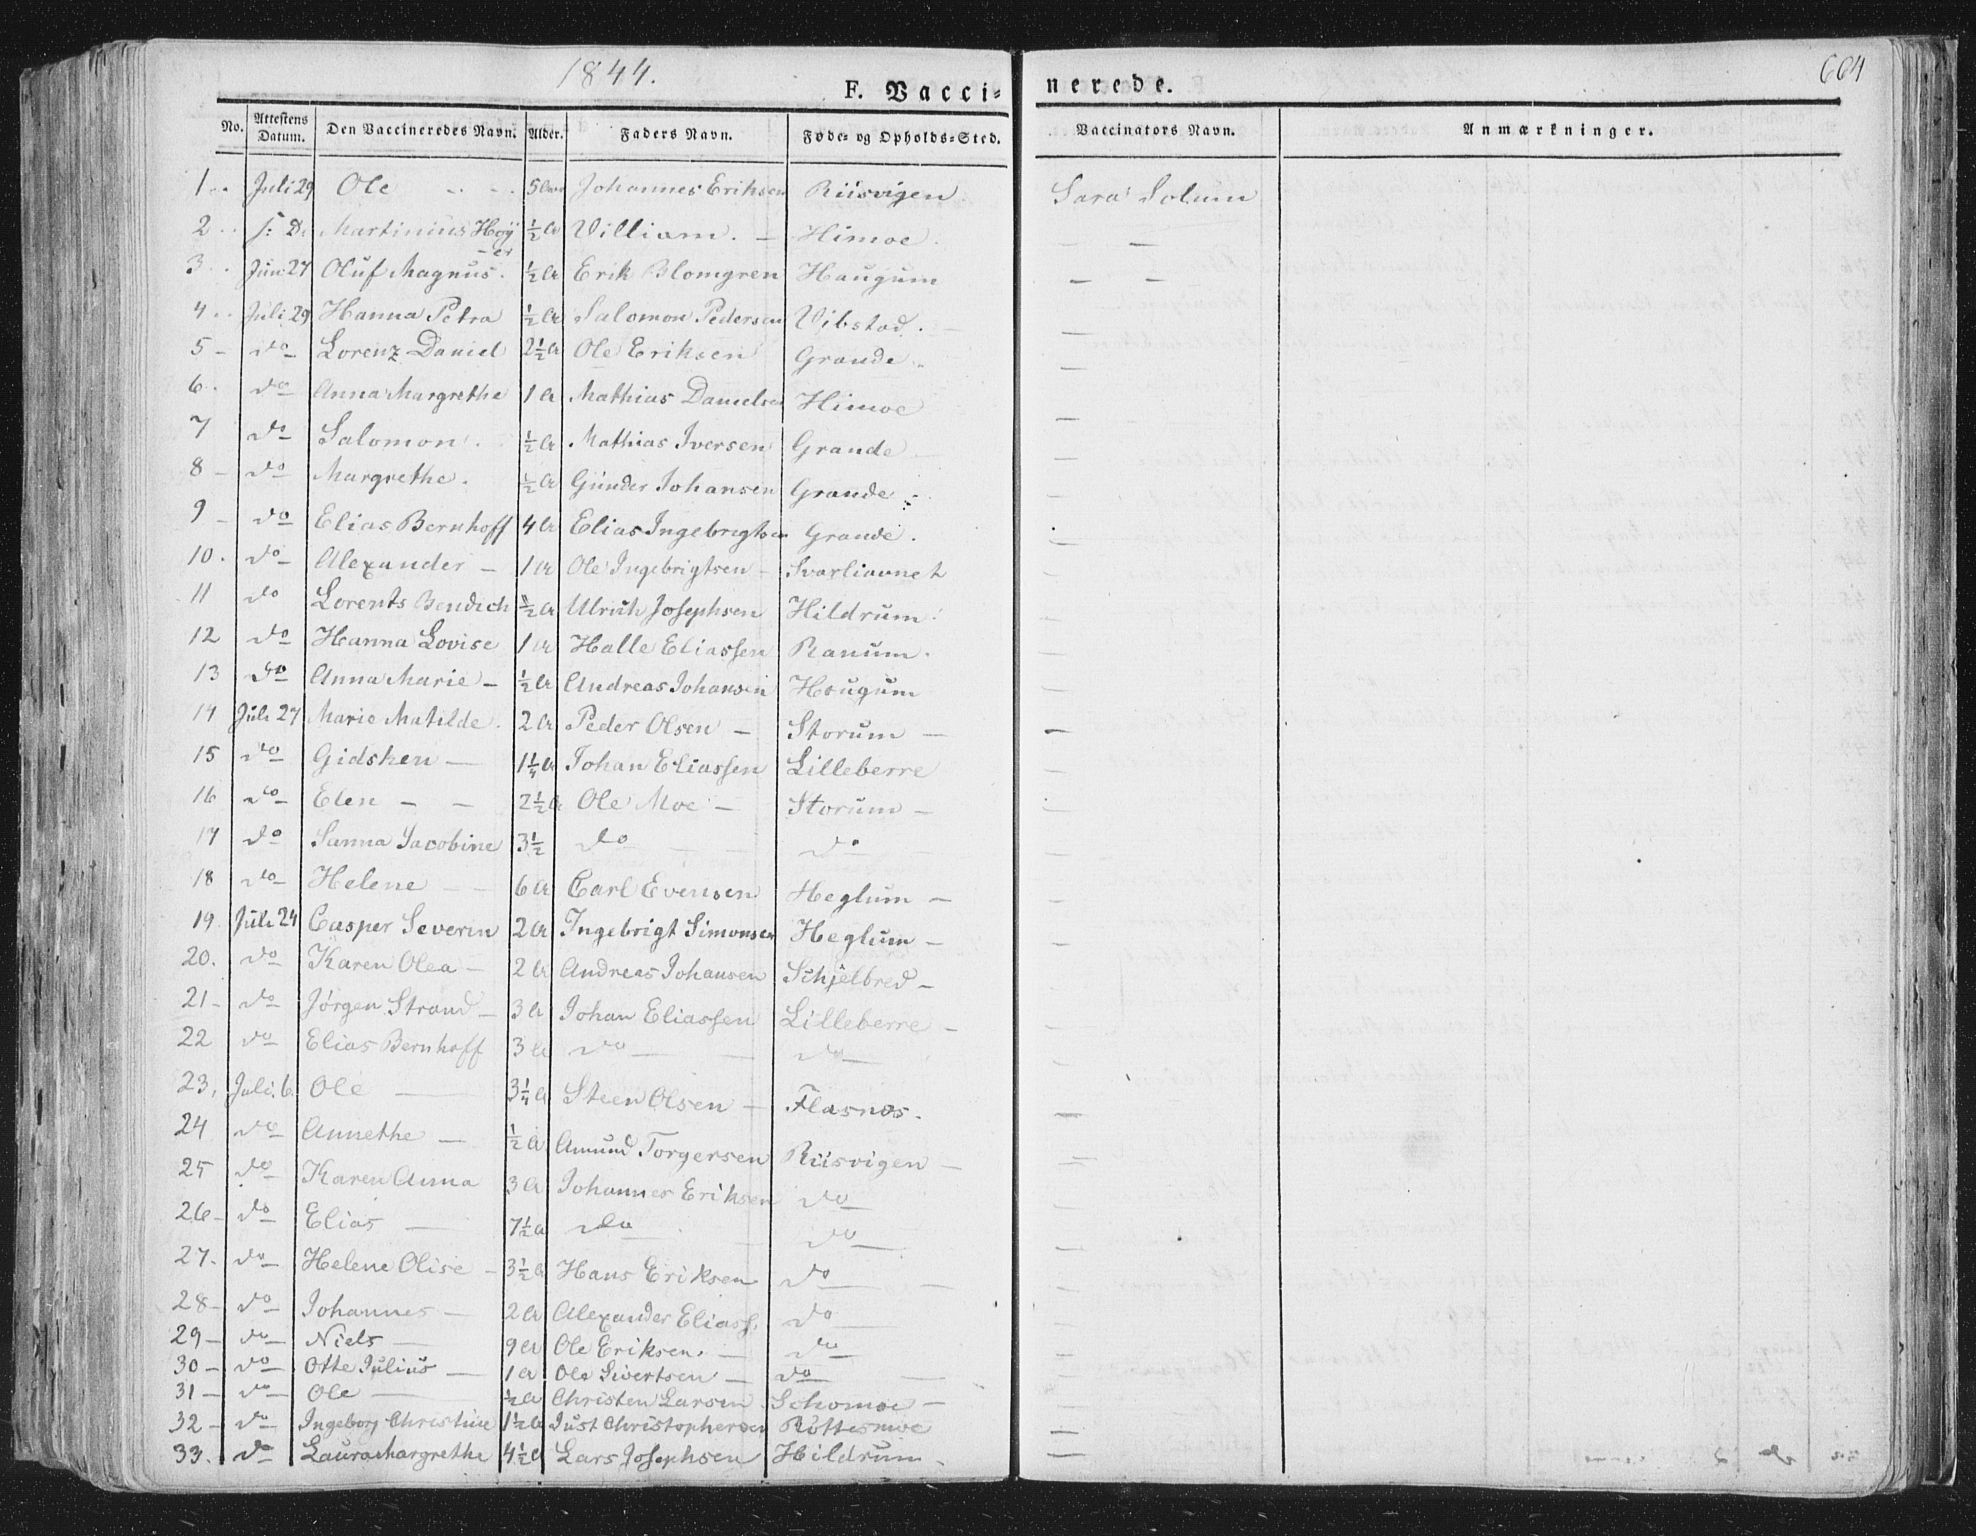 1844.
F. Vacci-
nerede.
664
No. Attestens Datum. Den Vaccineredes Navn. Alder. Faders Navn. Føde- og Opholds-Sted. Vaccinators Navn. Anmærkninger.
1 Juli 29 Ole Johannes Eriksen Riisvigen Sara Solum
2 Martinius Hoÿer ½ a William Himoe — —
3 Juni 27 Oluf Magnus ½ a Erik Blomgren Haugum — —
4 Juli 29 Hanna Petra ½ a Salomon Pedersen Vibstad —
5 do Lorenz Daniel 2½ a Ole Eriksen Grande —
6 do Anna Margrethe 1 a Mathias Danielsen Himoe —
7 do Salomon ½ a Mathias Iversen Grande —
8 do Margrethe ½ a Gunder Johansen Grande —
9 do Elias Bernhoff 4 a Elias Ingebrigtsen Grande —
10 do Alexander 1 a Ole Ingebrigtsen Svarliavnet —
11 do Lorents Bendich ½ a Ulrich Josephsen Hildrum —
12 do Hanna Lovise 1 a Halle Eliassen Ranum —
13 do Anna Marie ½ a Andreas Johansen Haugum —
14 Juli 27 Marie Matilde 2 a Peder Olsen Storum —
15 do Gidsken 1¼ a Johan Eliassen Lilleberre —
16 do Elen 2½ a Ole Moe Storum —
17 do Sanna Jacobine 3½ do do —
18 do Helene 6 a Carl Evensen Heglum —
19 Juli 24 Casper Severin 2 a Ingebrigt Simonsen Heglum —
20. do Karen Olea 2 a Andreas Johansen Schjelbred —
21 do Jørgen Strand 3 a Johan Eliassen Lilleberre —
22 do Elias Bernhoff 3 a do do —
23, Juli 6 Ole 3¼ a Steen Olsen Flasnes. —
24 do Annethe ½ a Amund Torgersen Riisvigen —
25 do Karen Anna 3 a Johannes Eriksen do —
26 do Elias 7½ a do do —
27. do Helene Olise 3½ a Hans Eriksen do —
28 do Johannes 2 a Alexander Eliass. do —
29 do Niels 9 a Ole Eriksen. do —
30 do Otte Julius 1 a Ole Sivertsen do —
31 do Ole ½ a Christen Larsen Schomoe —
32 do Ingeborg Christine 1½ a Just Christophersen Røttesmoe —
33. do Laura Margrethe 4½ a Lars Josephsen Hildrum —